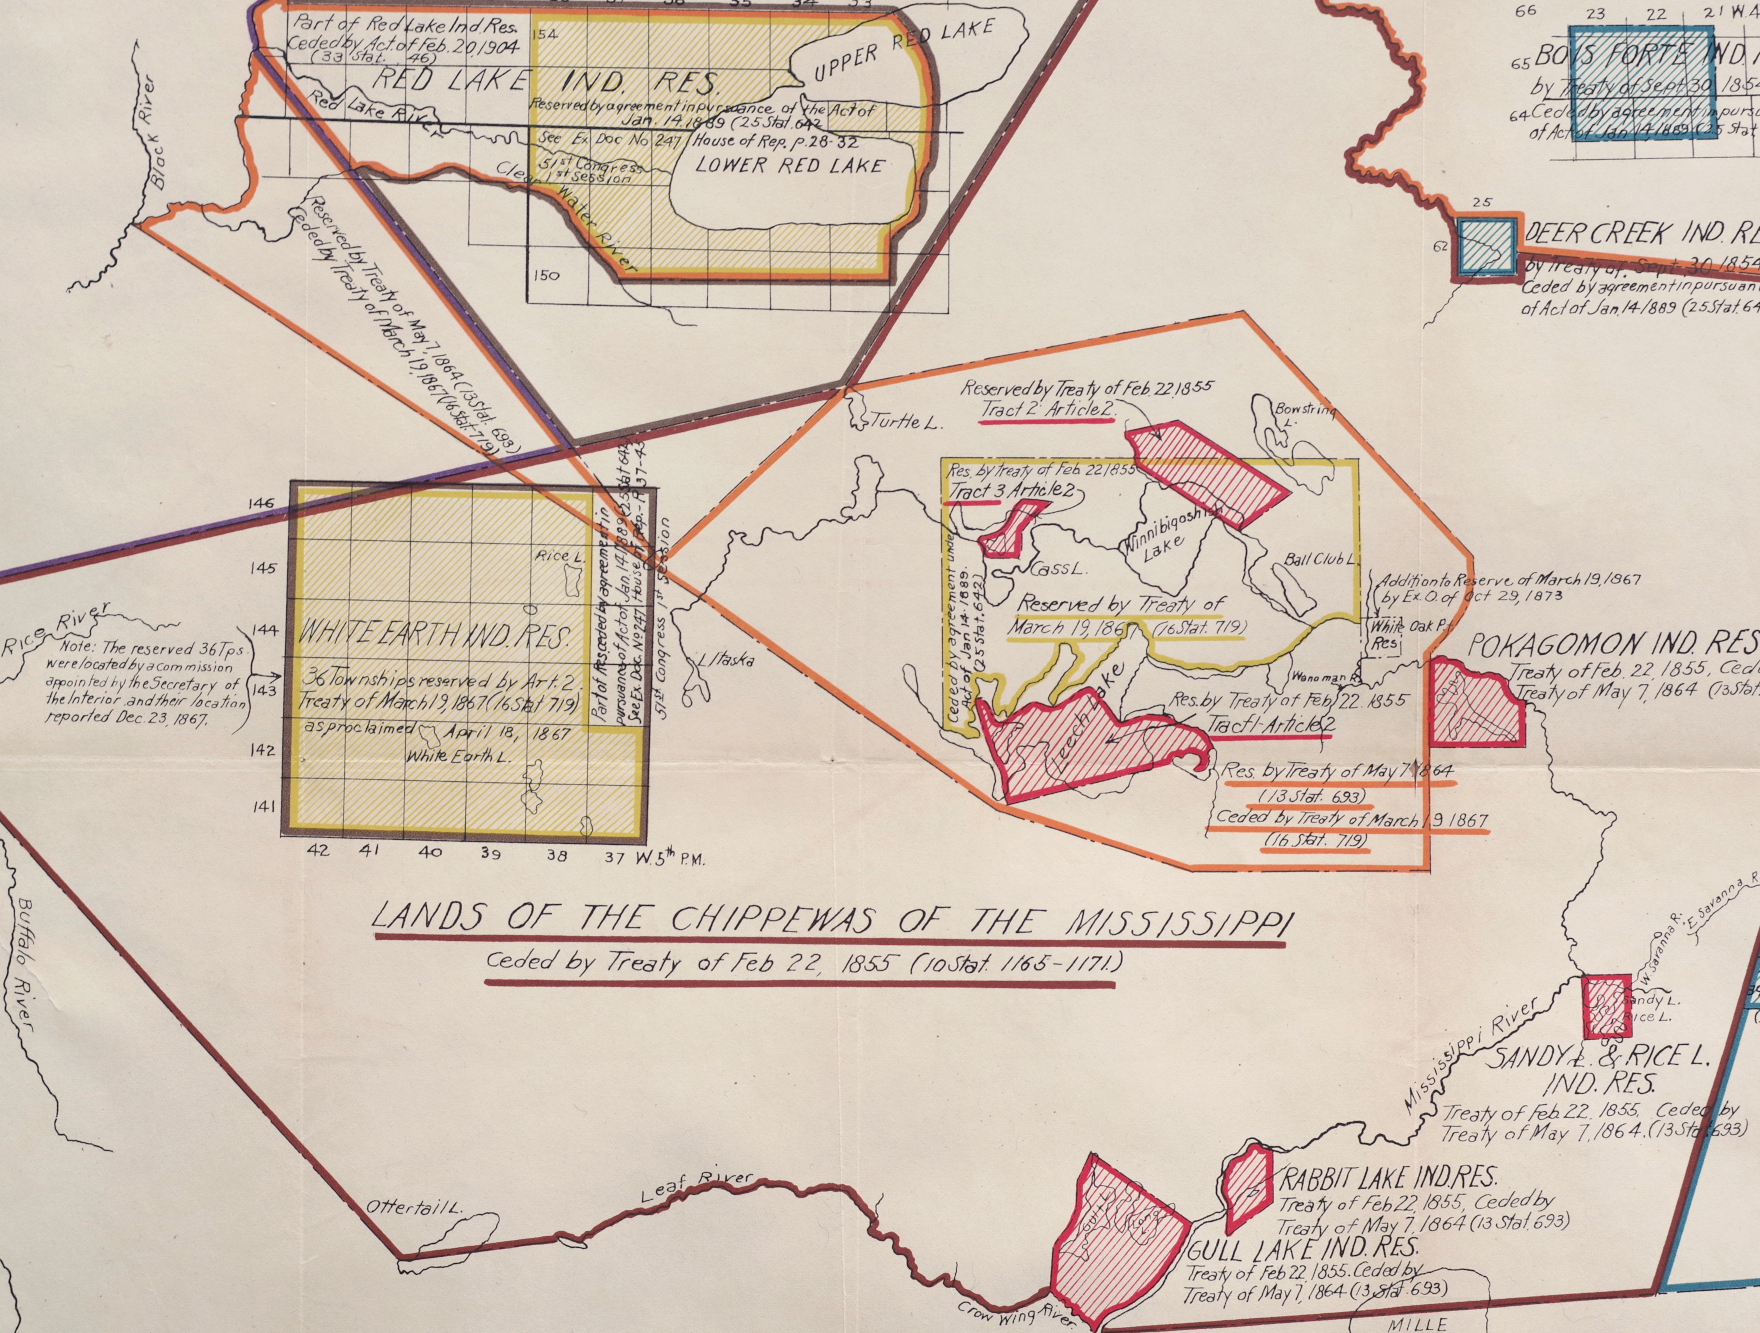 Part of Red Lake Ind. Res.
Ceded by Act of Feb. 20, 1904
(33 Stat. 46)
RED LAKE IND. RES.
154
Reserved by agreement in pursuance of the Act of
Jan. 14, 1889 (25 Stat. 642
See Ex. Doc. No 247 House of Rep. p. 28-32
51st Congress
1st Session
UPPER RED LAKE
LOWER RED LAKE
Red Lake River
Clear Water River
Black River
150
66
23 22 21 W.4
65 BOIS FORTE IND.
by Treaty of Sept 30, 1854
64 Ceded by agreement in pursu
of Act of Jan 14 1889 (25 Stat
25
62
DEER CREEK IND. RE
by Treaty of Sept 30 1854
Ceded by agreement in pursuan
of Act of Jan. 14 1889 (25 Stat. 64
Reserved by Treaty of May 7, 1864 (13 Stat. 693)
Ceded by Treaty of March 19, 1867 (16 Stat. 719)
Reserved by Treaty of Feb. 22, 1855
Tract 2 Article 2.
Turtle L.
Bowstring
L.
Res. by Treaty of Feb. 22 1855
Tract 3 Article 2
Winnibigoshish
Lake
Cass L.
Ball Club L.
Ceded by agreement under
Act of Jan 14-1889.
(25 Stat. 642)
Reserved by Treaty of
March 19, 186 (16 Stat. 719)
Addition to Reserve of March 19, 1867
by Ex. O. of Oct 29, 1873
White Oak Pt.
Res.
POKAGOMON IND. RES
Treaty of Feb. 22, 1855, Ced
Treaty of May 7, 1864 (13 Stat.
Leech Lake
Res. by Treaty of Feb. 22. 1855
Tract 1-Article 2
Res. by Treaty of May 7 1864
(13 Stat. 693)
Ceded by Treaty of March 19 1867
(16 Stat. 719)
146
145
144
143
142
141
42 41 40 39 38 37 W. 5th P.M.
Rice River
Note: The reserved 36 Tps.
were located by a commission
appointed by the Secretary of
the Interior and their location
reported Dec. 23, 1867.
Rice L.
WHITE EARTH IND. RES.
36 Townships reserved by Art. 2
Treaty of March 19, 1867 (16 Stat 719)
as proclaimed April 18, 1867
White Earth L.
Part of Res. ceded by agreement in
pursuance of Act of Jan. 14 1889 (25 Stat 642
See Ex. Doc. No 247 House of Rep.-P. 37-45
51st Congress 1st Session
L. Itaska
LANDS OF THE CHIPPEWAS OF THE MISSISSIPPI
Ceded by Treaty of Feb 22, 1855 (10 Stat. 1165-1171.)
Buffalo River
Ottertail L.
Leaf River
Crow Wing River
Mississippi River
W. Savanna R.
E. Savanna R.
Sandy L.
Rice L.
SANDY L. & RICE L.
IND. RES.
Treaty of Feb. 22, 1855, Ceded by
Treaty of May 7, 1864. (13 Stat 693)
RABBIT LAKE IND. RES.
Treaty of Feb 22, 1855, Ceded by
Treaty of May 7, 1864 (13 Stat. 693)
Gull
Long
GULL LAKE IND. RES.
Treaty of Feb 22, 1855. Ceded by
Treaty of May 7, 1864 (13 Stat 693)
MILLE